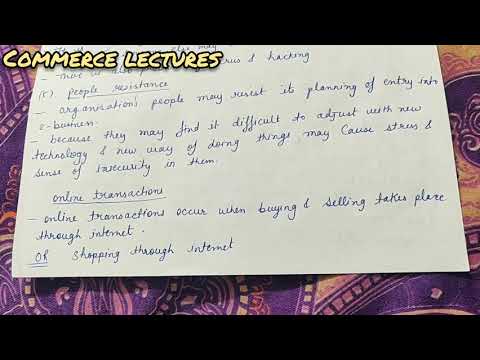 COMMERCE LECTURES
also may
not is also virus & hacking
(8) people resistance
- organisation's people may resist its planning of entry into
e-business.
- because they may find it difficult to adjust with new
technology & new way of doing things may cause stress &
sense of insecurity in them.
online transactions
- online transactions occur when buying & selling takes place
through internet.
OR shopping through internet